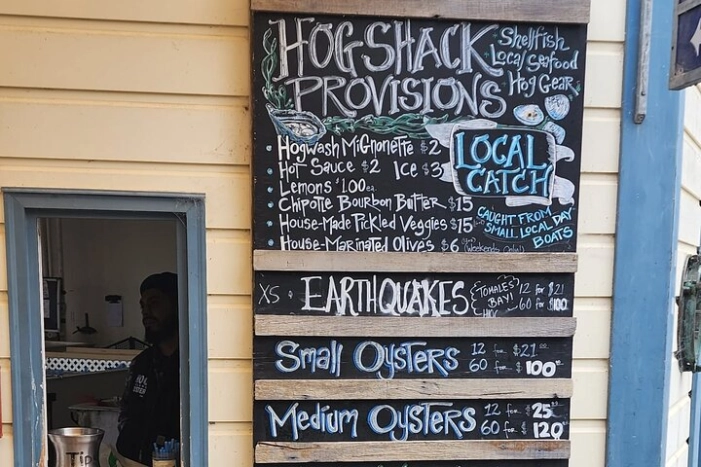 HOG SHACK
PROVISIONS
Shellfish
Local Seafood
Hog Gear
Hogwash Mignonette $2
Hot Sauce $2 Ice $3
Lemons $1.00 ea
Chipotle Bourbon Butter $15
House-Made Pickled Veggies $15
House-Marinated Olives $6
(Weekends Only!)
LOCAL
CATCH
CAUGHT FROM
SMALL LOCAL DAY
BOATS
XS - EARTHQUAKES
TOMALES
BAY!
12 for $21
60 for $100
Small Oysters 12 for $21
60 for $100
Medium Oysters 12 for $25
60 for $120
Tip